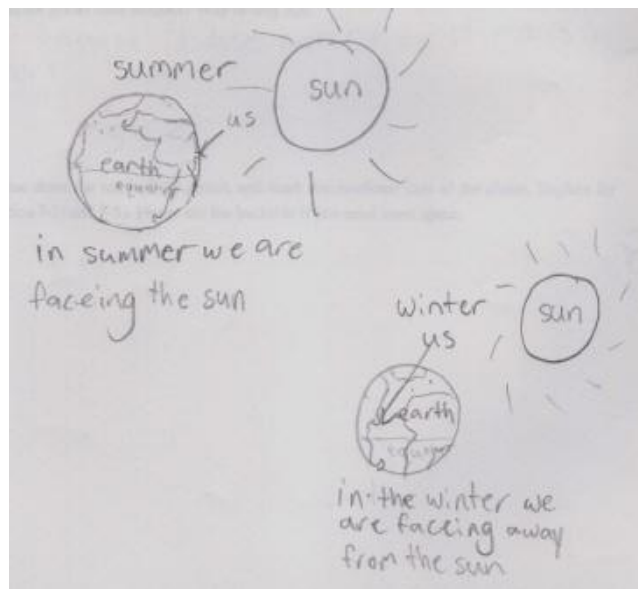 summer
sun
us
earth
equator
in summer we are
faceing the sun
winter
us
sun
earth
equator
in the winter we
are faceing away
from the sun